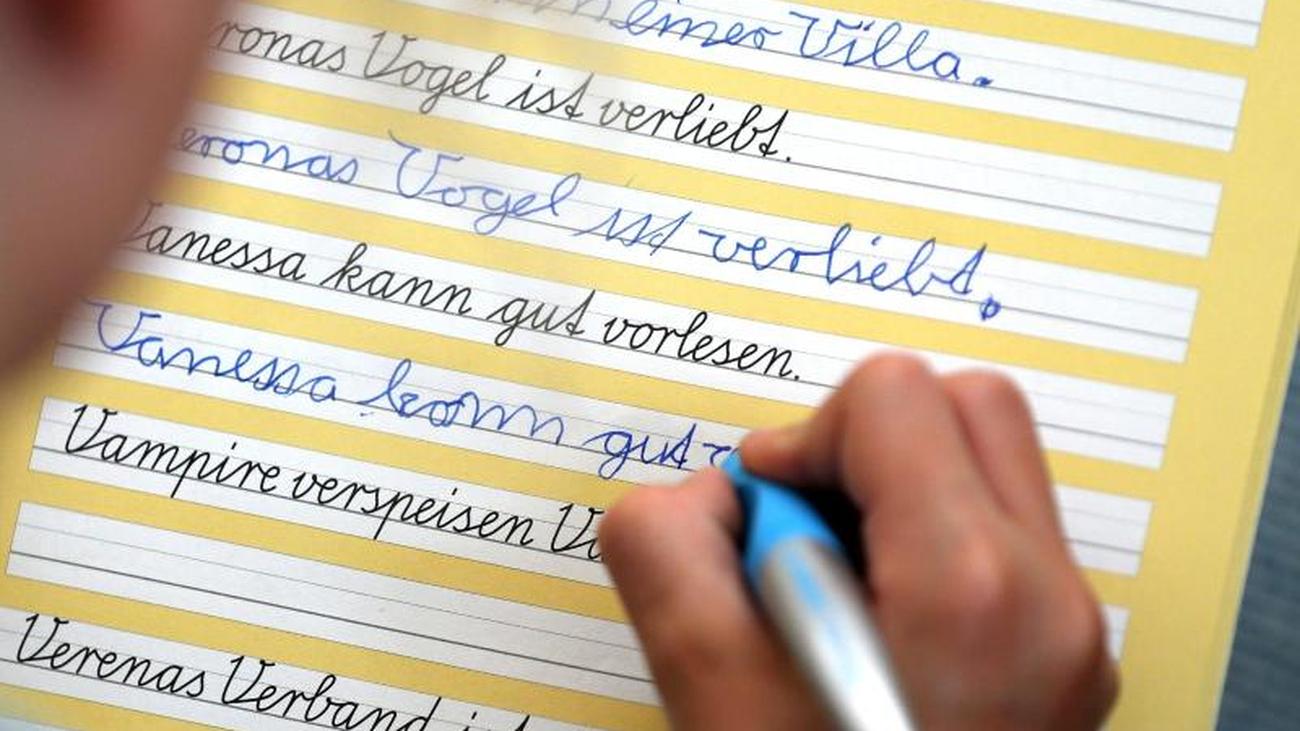 Villa.
ronas Vogel ist verliebt.
eronas Vogel ist verliebt.
Vanessa kann gut vorlesen.
Vanessa kann gut
Vampire verspeisen
Verenas Verband